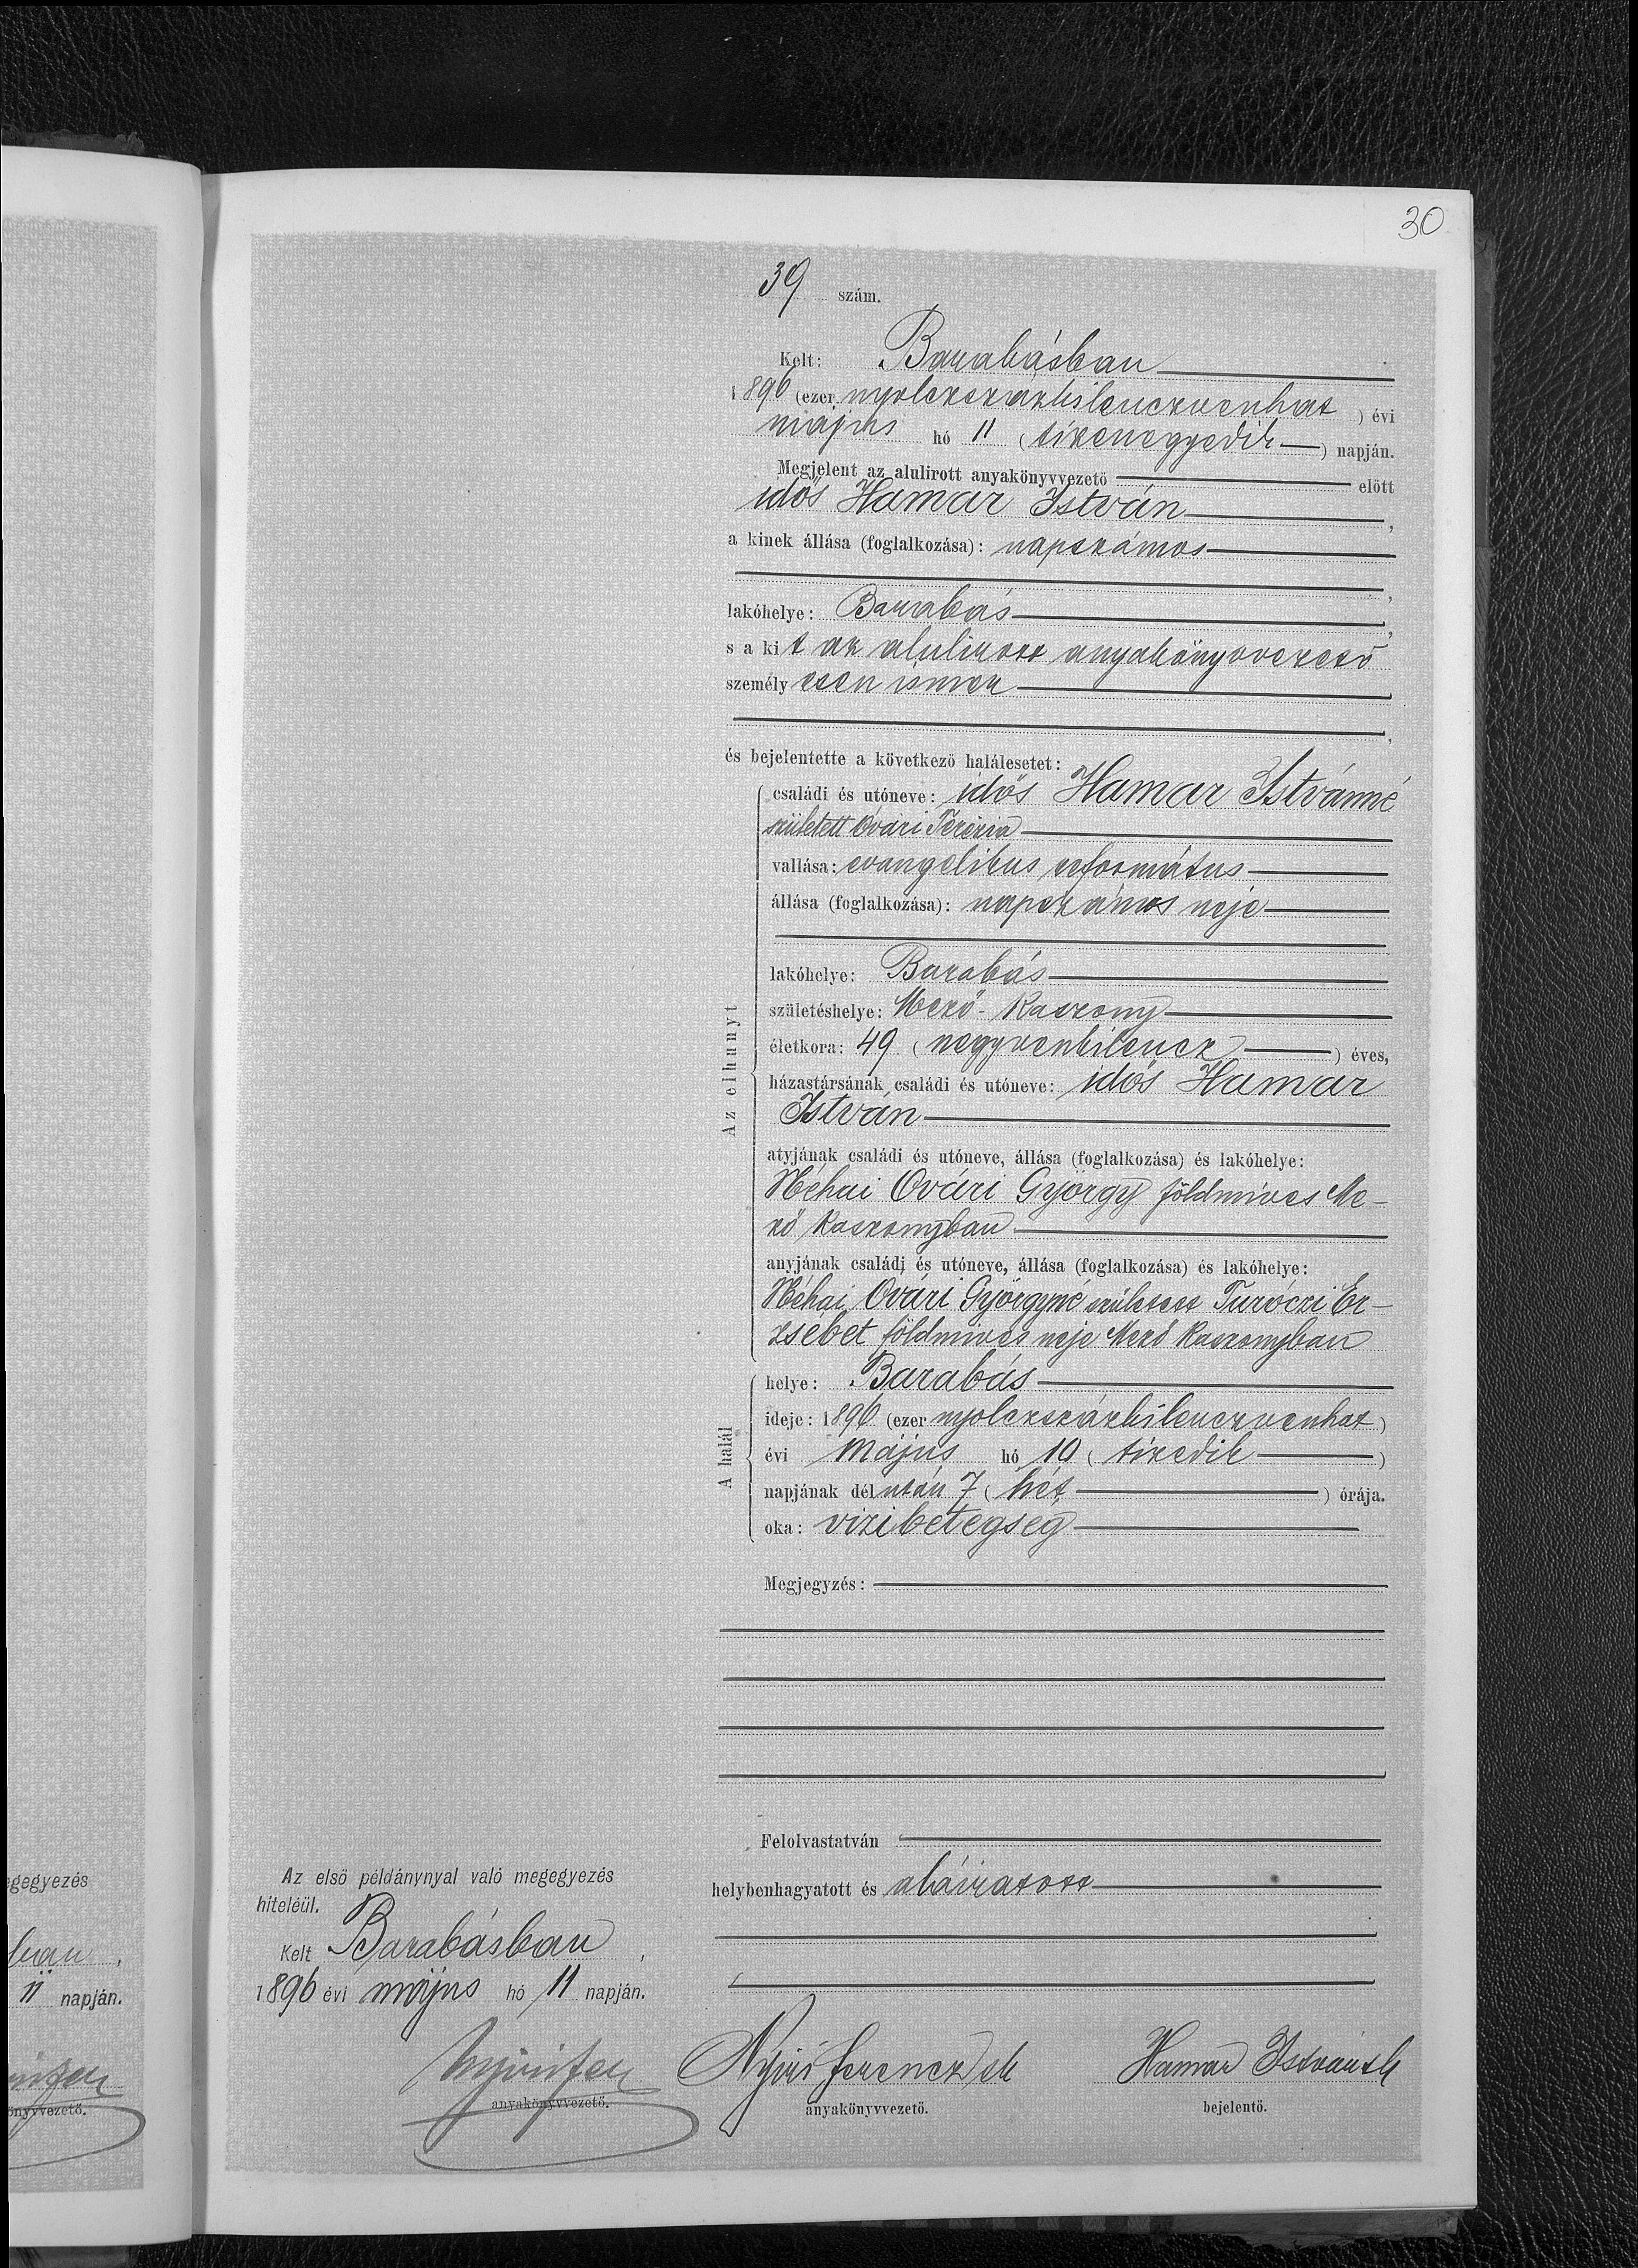 30
39 szám.
Kelt: Barabásban
1896 (ezer nyolczszázkilenczvenhat) évi
május hó 11 (tizenegyedik) napján.
Megjelent az alulirott anyakönyvvezető előtt
idős Hamar István,
a kinek állása (foglalkozása): napszámos
lakóhelye: Barabás,
s a kit az alulirott anyakönyvvezető
személyesen ismer,
és bejelentette a következő halálesetet:
Az elhunyt
családi és utóneve: idős Hamar Istvánné
született Óvári Terézia
vallása: evangelikus református
állása (foglalkozása): napszámos neje
lakóhelye: Barabás
születéshelye: Mező-Kaszony
életkora: 49 (negyvenkilencz) éves,
házastársának családi és utóneve: idős Hamar
István
atyjának családi és utóneve, állása (foglalkozása) és lakóhelye:
Néhai Óvári György földmives Me-
ző Kaszonyban
anyjának családi és utóneve, állása (foglalkozása) és lakóhelye:
Néhai Óvári Györgyné született Turóczi Er-
zsébet földmives neje Mező Kaszonyban
A halál
helye: Barabás
ideje: 1896 (ezer nyolczszázkilenczvenhat)
évi május hó 10 (tizedik)
napjának délután 7 (hét) órája.
oka: vizibetegség
Megjegyzés:
Felolvastatván
helybenhagyatott és aláiratott
Nyiri Ferencz sk Hamar István sk
anyakönyvvezető. bejelentő.
Az első példánynyal való megegyezés
hiteléül.
Kelt Barabásban,
1896 évi május hó 11 napján.
anyakönyvvezető.
egegyezés
ban,
11 napján.
önyvvezető.